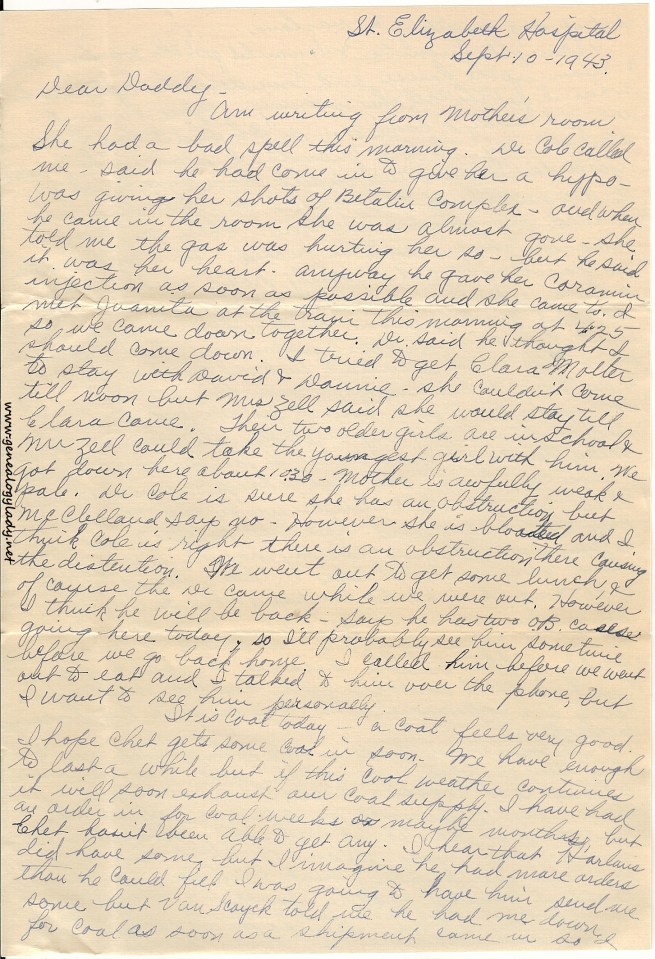 St. Elizabeth Hospital
Sept. 10-1943.
Dear Daddy-
Am writing from Mother's room
She had a bad spell this morning. Dr Cole called
me - said he had come in to give her a hypo-
was giving her shots of Betalin Complex - and when
he came in the room she was almost gone - she
told me the gas was hurting her so - but he said
it was her heart. Anyway he gave her Coramin
injection as soon as possible and she came to. I
met Juanita at the train this morning at 4:25
so we came down together. Dr. said he thought I
should come down. I tried to get Clara Molter
to stay with David & Dannie - she couldn't come
till noon but Mrs Zell said she would stay till
Clara came. Their two older girls are in school &
Mr Zell could take the youngest girl with him. We
got down here about 10:30 - Mother is awfully weak &
pale. Dr Cole is sure she has an obstruction but
McClelland say no - However she is bloated and I
think Cole is right there is an obstruction there causing
the distention. We went out to get some lunch &
of course the Dr came while we were out. However
I think he will be back - says he has two O.B. cases
going here today, so I'll probably see him sometime
before we go back home. I called him before we went
out to eat and I talked to him over the phone, but
I want to see him personally.
It is cool today - a coat feels very good.
I hope Chet gets some coal in soon. We have enough
to last a while but if this cool weather continues
it will soon exhaust our coal supply. I have had
an order in for coal weeks or maybe months, but
Chet hasn't been able to get any. I hear that Harlans
did have some but I imagine he had more orders
than he could fill I was going to have him send me
some but Van Scoyck told me he had me down
for coal as soon as a shipment came in so I
www.genealogylady.net